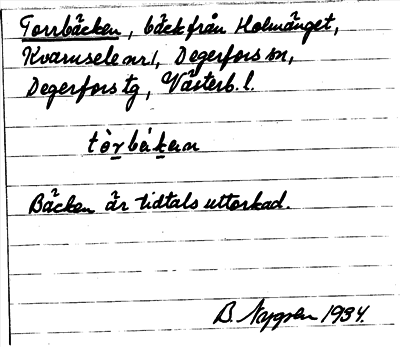 Torrbäcken, bäck från Holmänget,
Kvarnsele nr 1, Degerfors sn,
Degerfors tg, Västerb. l.
Bäcken är tidtals uttorkad.
B. Nygren 1934.